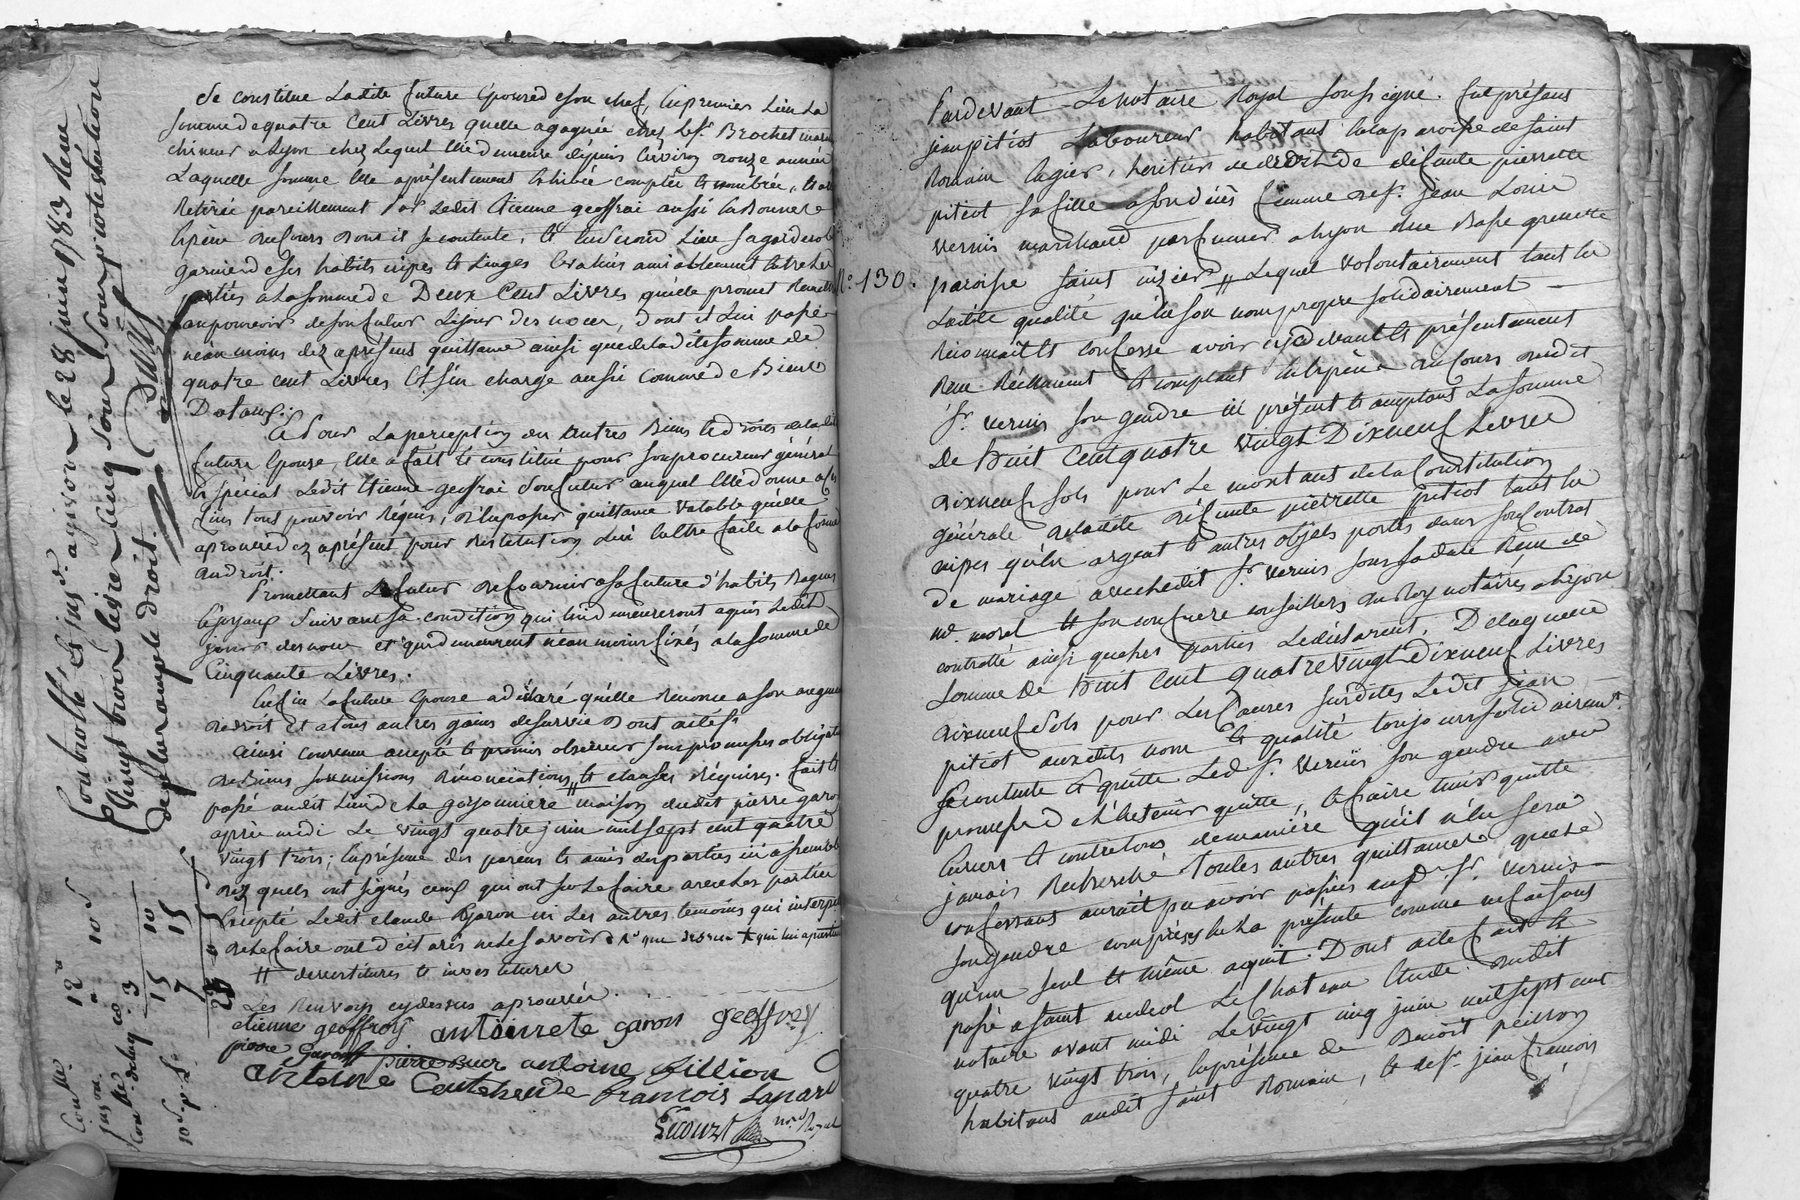 Se constitue Ladite future Epouse de son chef, en premier Lieu La
somme de quatre Cent Livres quelle a gagnée chez le Sr. Brochet
a Lyon chez Lequel Elle demeure depuis Environ onze année
Laquelle somme Elle a présentement Exhibée comptée et nombrée, et
Retirée pareillement Par Ledit Etienne geoffrai aussi En Bonnes
Espèces de Cours dont il se contente, et En second Lieu sa garderobe
garnie de ses habits nipes et Linges Evalués amiablement Entre Les
parties a La somme de Deux Cent Livres, quelle promet Remettre
au pouvoir de son futur Le jour des noces, dont il Lui passe
néanmoins dez aprésent quittance ainsi que de Ladite somme de
quatre cent Livres Et s'en charge aussi Comme de Biens
Dotaux.
Et Pour La perception des autres Biens et droits de Ladite
future Epouse, Elle a fait et constitué pour son procureur général
Et spécial Ledit Etienne geoffrai son futur auquel Elle donne a ces
fins tous pouvoir Requis, d'En passer quittance valable quelle
aprouve dez aprésent pour Restitution Lui En Etre faite a la forme
du droit.
Promettant Le futur de fournir a sa future d'habits Bagues
Et joyaux suivant sa condition qui Lui demeureront aquis Ledit
jour des noces et qui demeurent néanmoins fixés a la somme de
Cinquante Livres.
Enfin La future Epouse a déclaré quelle Renonce a son augment
de droit Et a tous autres gains de survie Dont acte
ainsi convenu accepté et promis observer sous promesses obligation
de Biens soumissions Rénonciations, # et clauses Réquises. fait et
passé audit Lieu de La garonniere maison dudit pierre garon
après midi Le vingt quatre juin mil sept cent quatre
vingt trois; En présence des parens et amis des parties ici assemblés
dez quels ont signés ceux qui ont su Le faire avec Les parties
Excepté Ledit claude garon ni Les autres temoins qui interpellés
de Le faire ont déclarés ne Le savoir
# devestitures et investitures
Les Renvoys cy dessus aprouvée.
etienne geoffroy antoinete garon geoffray
pierre Garon pierre Buer antoine fillion
antoine Coutehende francois Lanard
Ecouzt nore Royal
Controllé Et insé. a givor le 28 juin 1783 Réçu
Vingt trois Livres Cinq Sous Sous protestation
de plus ample droit.
12 " 10 s
15 10
7 15
Par devant Le notaire Royal soussigné. fut présent
jean pitiot Laboureur habitant La paroisse de saint
Romain Lagier, heritier de droit de défunte pierrette
pitiot sa fille a son déces femme de sr. jean Louis
vernis marchand parfumeur a Lyon rue Basse grenette
N°. 130. paroisse saint nizier # Lequel volontairement tant En
Ladite qualité qu'En son nom propre solidairement
Reconnait Et confesse avoir ci devant Et présentement
Reçu Réellement Et comptant En Espèces au Cours dudit
Sr. vernis son gendre ici présent Et acceptant La somme
De huit Cent quatre vingt Dix neuf Livres
dix neuf sols pour Le montant de La Constitution
générale de Ladite défunte pierrette pitiot tant En
nipes qu'En argent Et autres objets portés dans son Contrat
De mariage avec Ledit Sr. vernis sous sa date Reçu de
Me. morel Et son confrere conseillers du Roy notaires a Lyon
controllé ainsi que Les parties Le déclarent, De laquelle
somme De huit Cent quatre vingt Dix neuf Livres
dix neuf sols pour Les Causes susdites Ledit jean
pitiot auxdits nom Et qualité toujours solidairemt.
se contente Et quitte Led. Sr. vernis son gendre avec
promesse d'En Le tenir quitte, Et faire tenir quitte
Envers Et contre tous de manière qu'il n'En sera
jamais Recherché Toutes autres quittances que Le
confessant aurait pu avoir passés aud. Sr. vernis
son gendre comprises En La présente comme ne faisant
qu'un seul Et même aquit. Dont acte fait Et
passé a saint andeol Le Chateau Etude dudit
notaire avant midi Le vingt cinq juin mil sept cent
quatre vingt trois, En présence de Benoît peisson
habitant audit saint Romain, Et de sr. jean francois